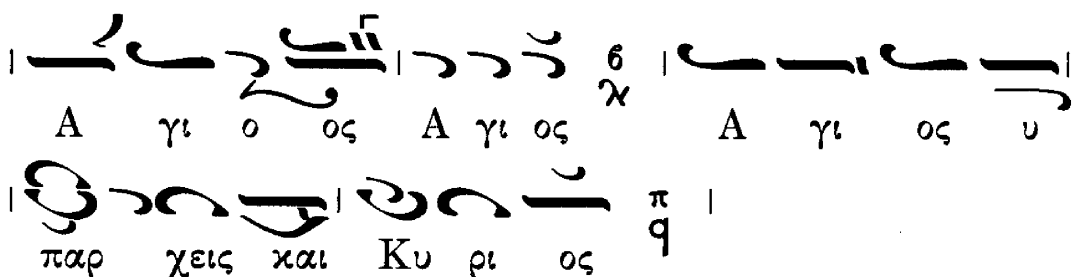 Α γι ο ος Α γι ος Α γι ος υ
παρ χεις και Κυ ρι ος